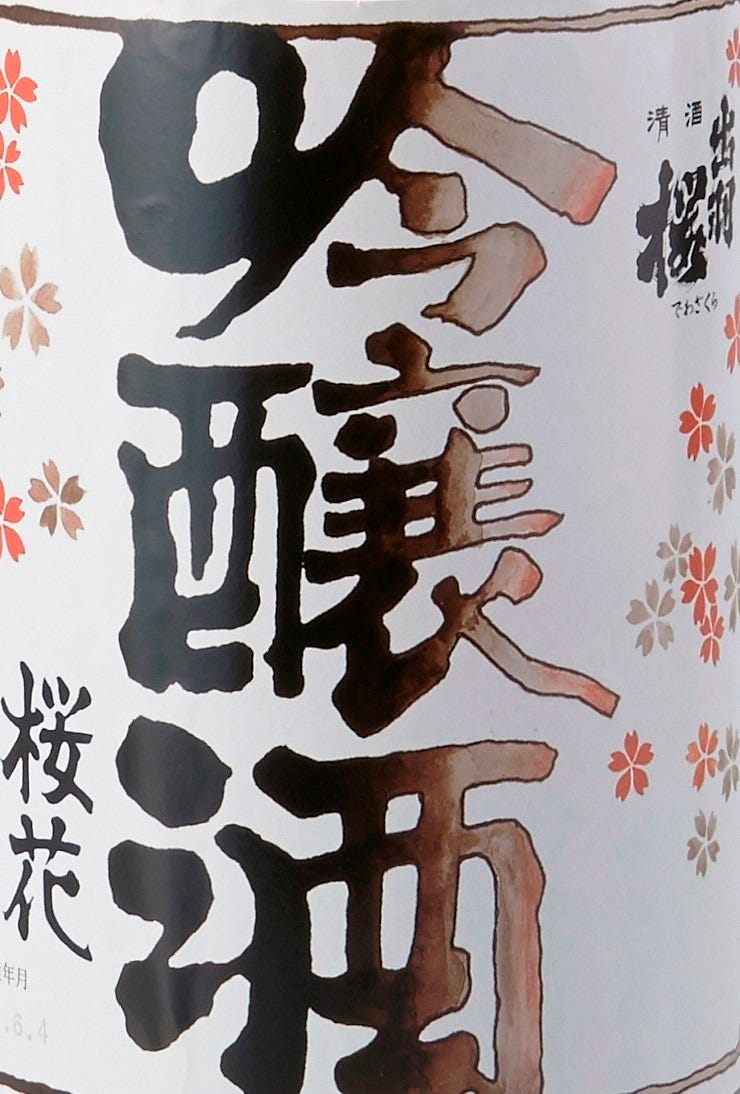 清酒
出羽
桜
でわざくら
吟醸酒
桜花
年月
.6.4